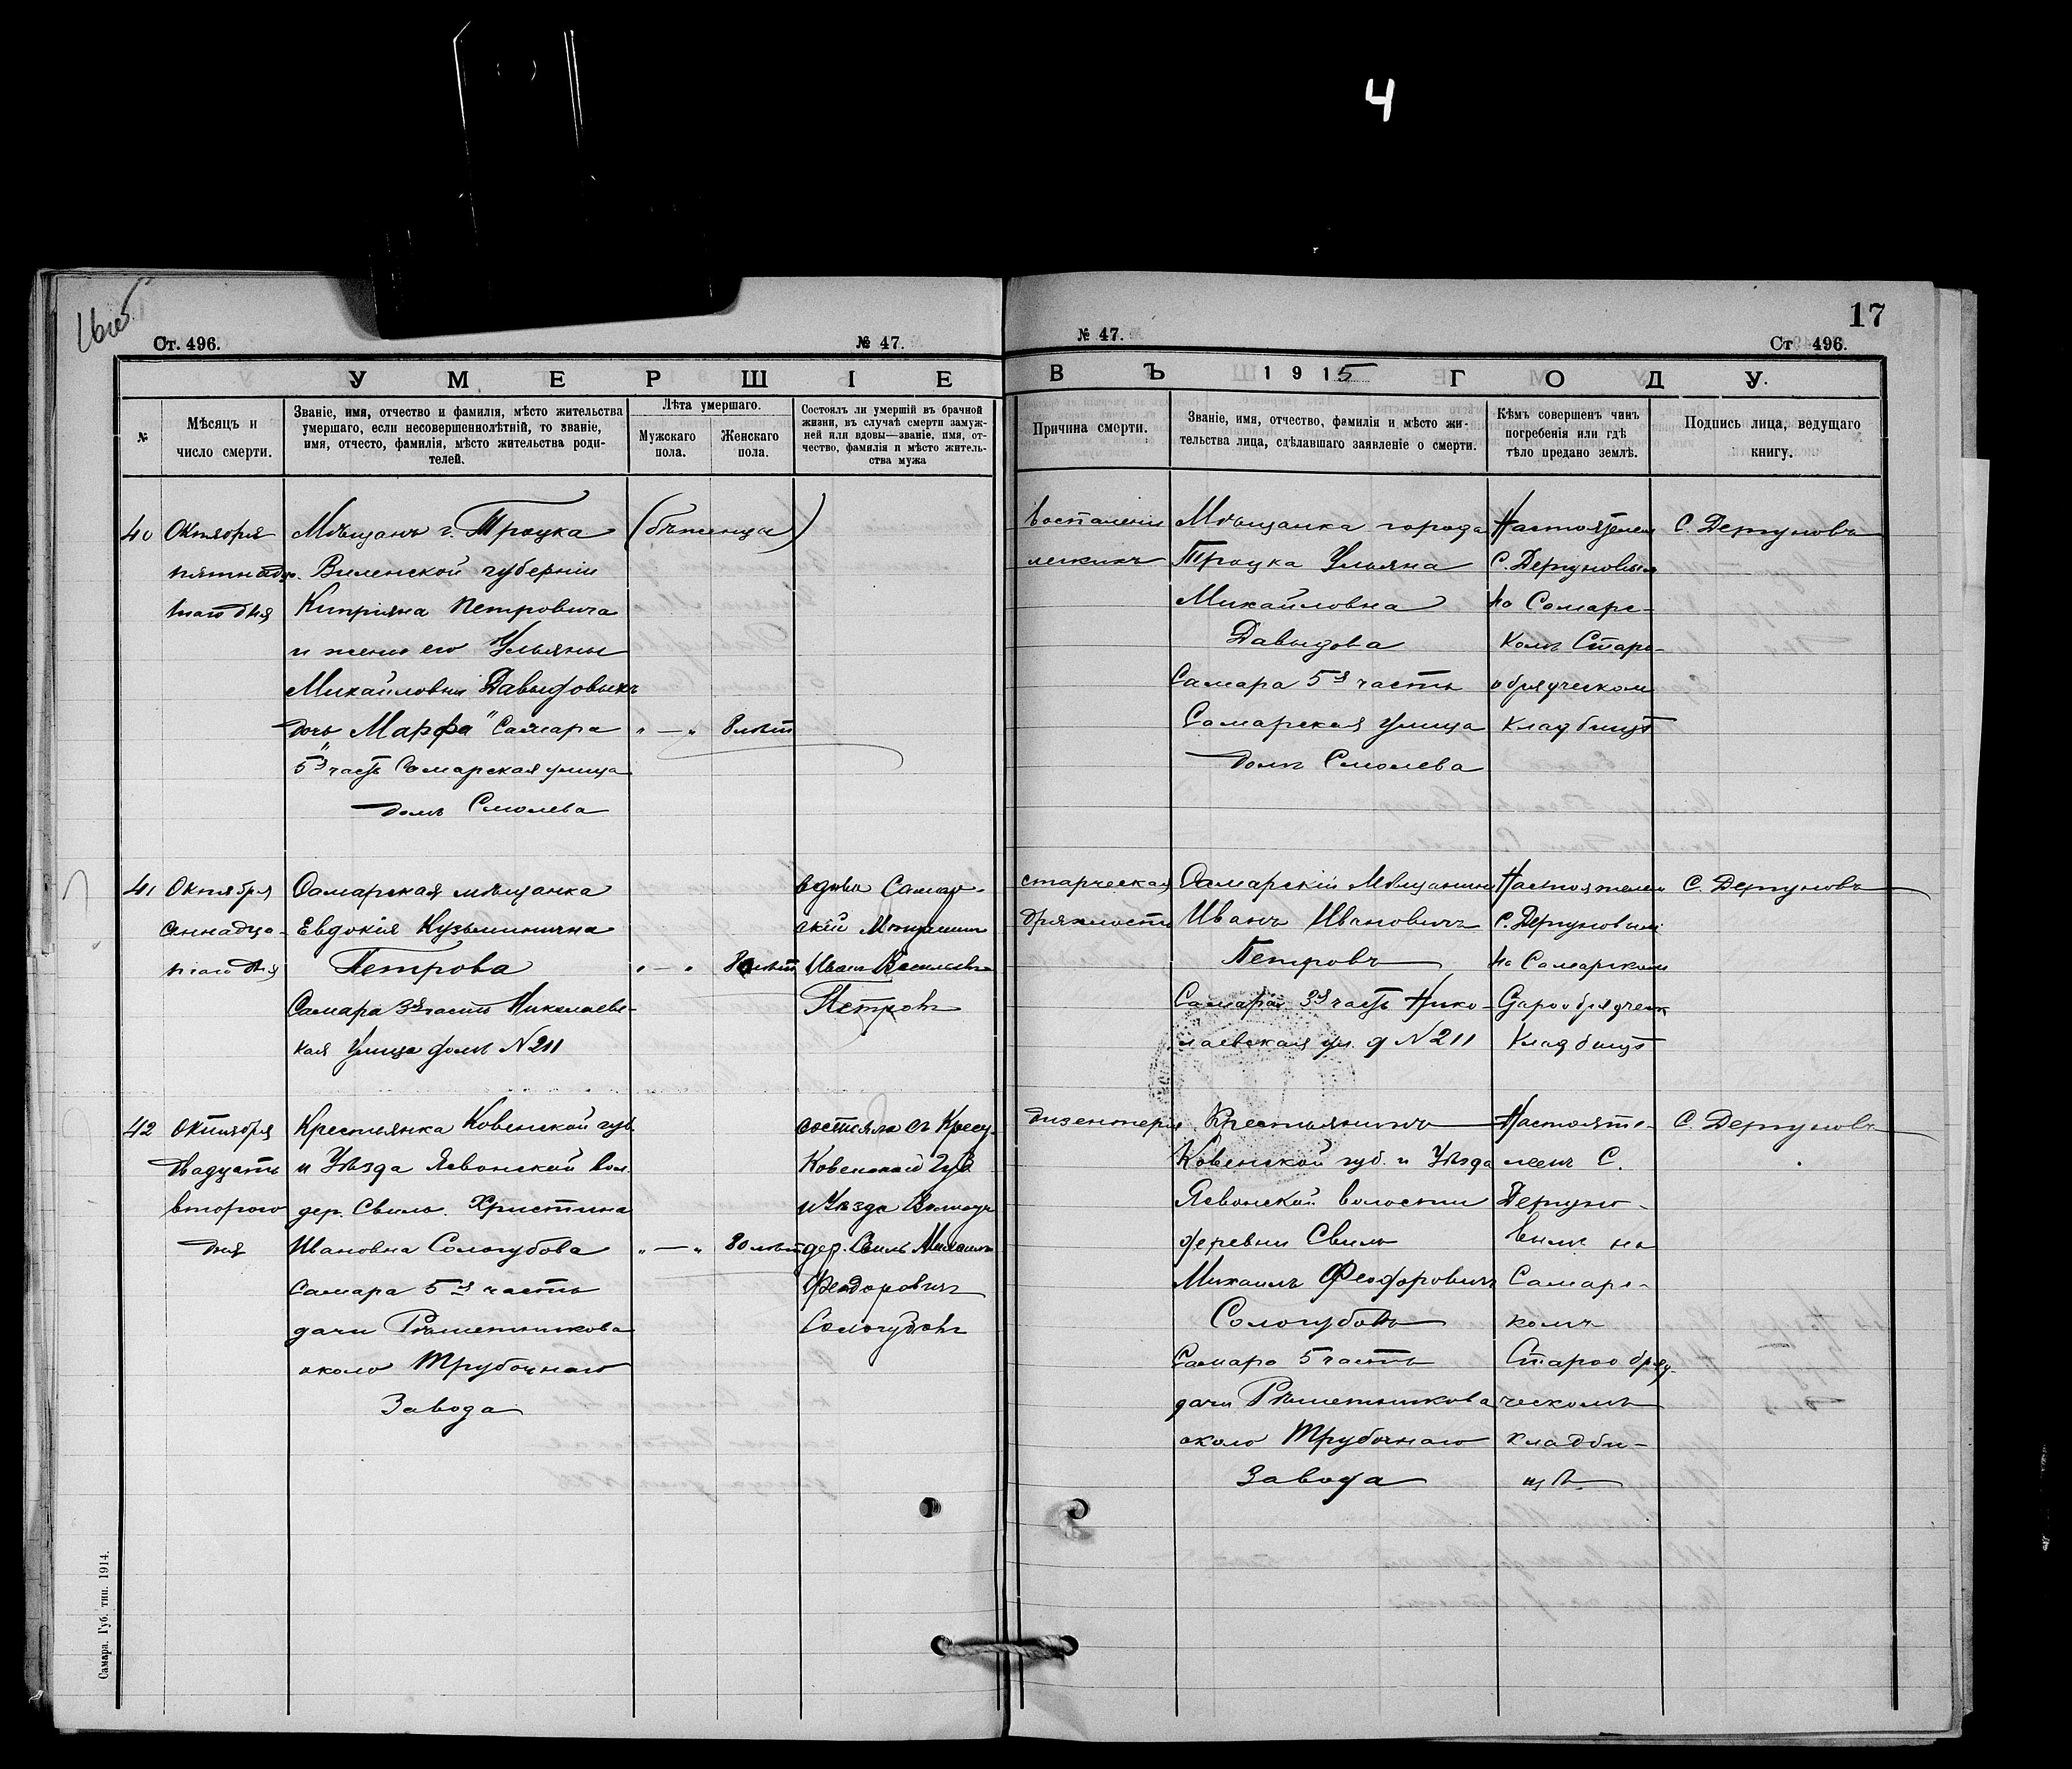 4
17
Ст. 496.
№ 47.
№ 47.
Ст. 496.
УМЕРШІЕ
ВЪ 1915 ГОДУ.
№
Мѣсяцъ и
число смерти.
Званіе, имя, отчество и фамилія, мѣсто жительства
умершаго, если несовершеннолѣтній, то званіе,
имя, отчесто, фамилія, мѣсто жительства роди-
телей.
Лѣта умершаго.
Мужскаго
пола.
Женскаго
пола.
Состоялъ ли умершій въ брачной
жизни, въ случаѣ смерти замуж-
ней или вдовы—званіе, имя, от-
чество, фамилія и мѣсто житель-
ства мужа
Причина смерти.
Званіе, имя, отчество, фамилія и мѣсто жи-
тельства лица, сдѣлавшаго заявленіе о смерти.
Кѣмъ совершенъ чинъ
погребенія или гдѣ
тѣло предано землѣ.
Подпись лица, ведущаго
книгу.
40
Октября
пятнадца-
таго дня
Мѣщанъ г. Троцка (бѣженцы)
Виленской губерніи
Кипріяна Петровича
и жены его Ульяны
Михайловны Давыдовыхъ
дочь Марфа" Самара
5я часть Самарская улица
домъ Смолева
"—"
8 лѣтъ
Воспаленіе
легкихъ
Мѣщанка города
Троцка Ульяна
Михайловна
Давыдова
Самара 5я часть
Самарская улица
домъ Смолева
Настоятелем
С. Дергуновым
на Самарс-
комъ Старо-
обрядческом
кладбищѣ
С. Дергуновъ
41
Октября
семнадца-
таго дня
Самарская мѣщанка
Евдокія Кузьминична
Петрова
Самара 3я часть Николаевс-
кая Улица домъ N 211
"—"
80 лѣтъ
вдова Самар-
скій Мѣщанин
Иванъ Васильевъ
Петровъ
старческая
дряхлость
Самарскій Мѣщанинъ
Иванъ Ивановичъ
Петровъ
Самара 3я часть Нико-
лаевская ул. д N 211
Настоятелем
С. Дергуновым
на Самарском
Старообрядческ
Кладбищѣ
С. Дергуновъ
42
Октября
двадцать
второго
дня
Крестьянка Ковенской губ.
и Уѣзда Ясвонской вол.
дер. Свиль. Христина
Ивановна Сологубова
Самара 5я часть
дачи Рѣшетникова
около Трубочнаго
Завода
"—"
80 лѣтъ
состояла съ Крест.
Ковенской Губ
и Уѣзда
дер. Свиль Михаилъ
Феодоровичъ
Сологубовъ
дизентерія
Крестьянинъ
Ковенской губ. и Уѣзда
Ясвонской волости
деревни Свиль
Михаилъ Феодоровичъ
Сологубовъ
Самара 5 часть
дачи Рѣшетникова
около Трубочнаго
Завода
Настояте-
лемъ С.
Дергуно-
вымъ на
Самарс-
комъ
Старообряд-
ческомъ
кладби-
щѣ
С. Дергуновъ
Самара. Губ. тип. 1914.